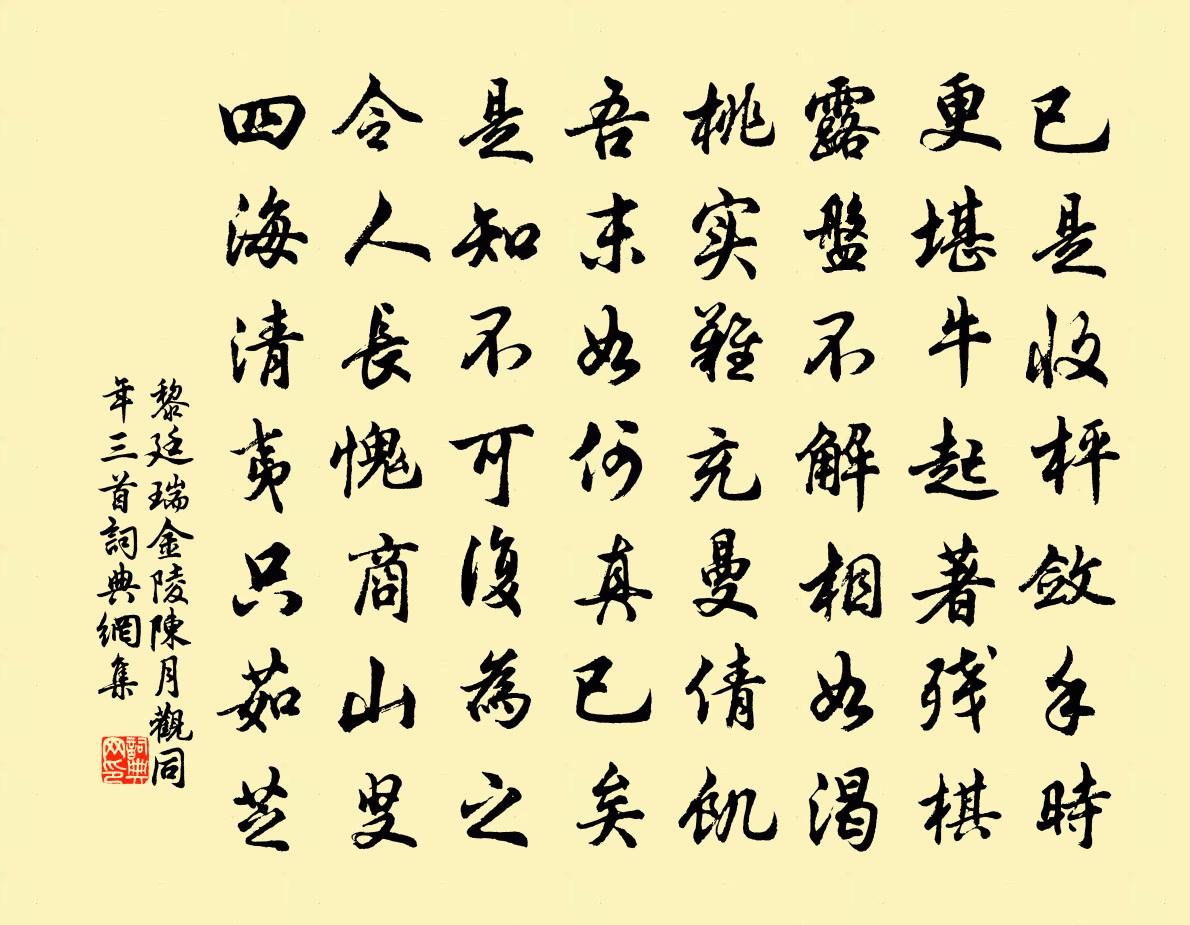 已是收枰斂手時
更堪牛起著残棋
露盤不解相如渴
桃实難充曼倩飢
吾末如何真已矣
是知不可復為之
令人長愧商山叟
四海清夷只茹芝
黎廷瑞金陵陳月觀同
年三首詞典網集
詞典网印